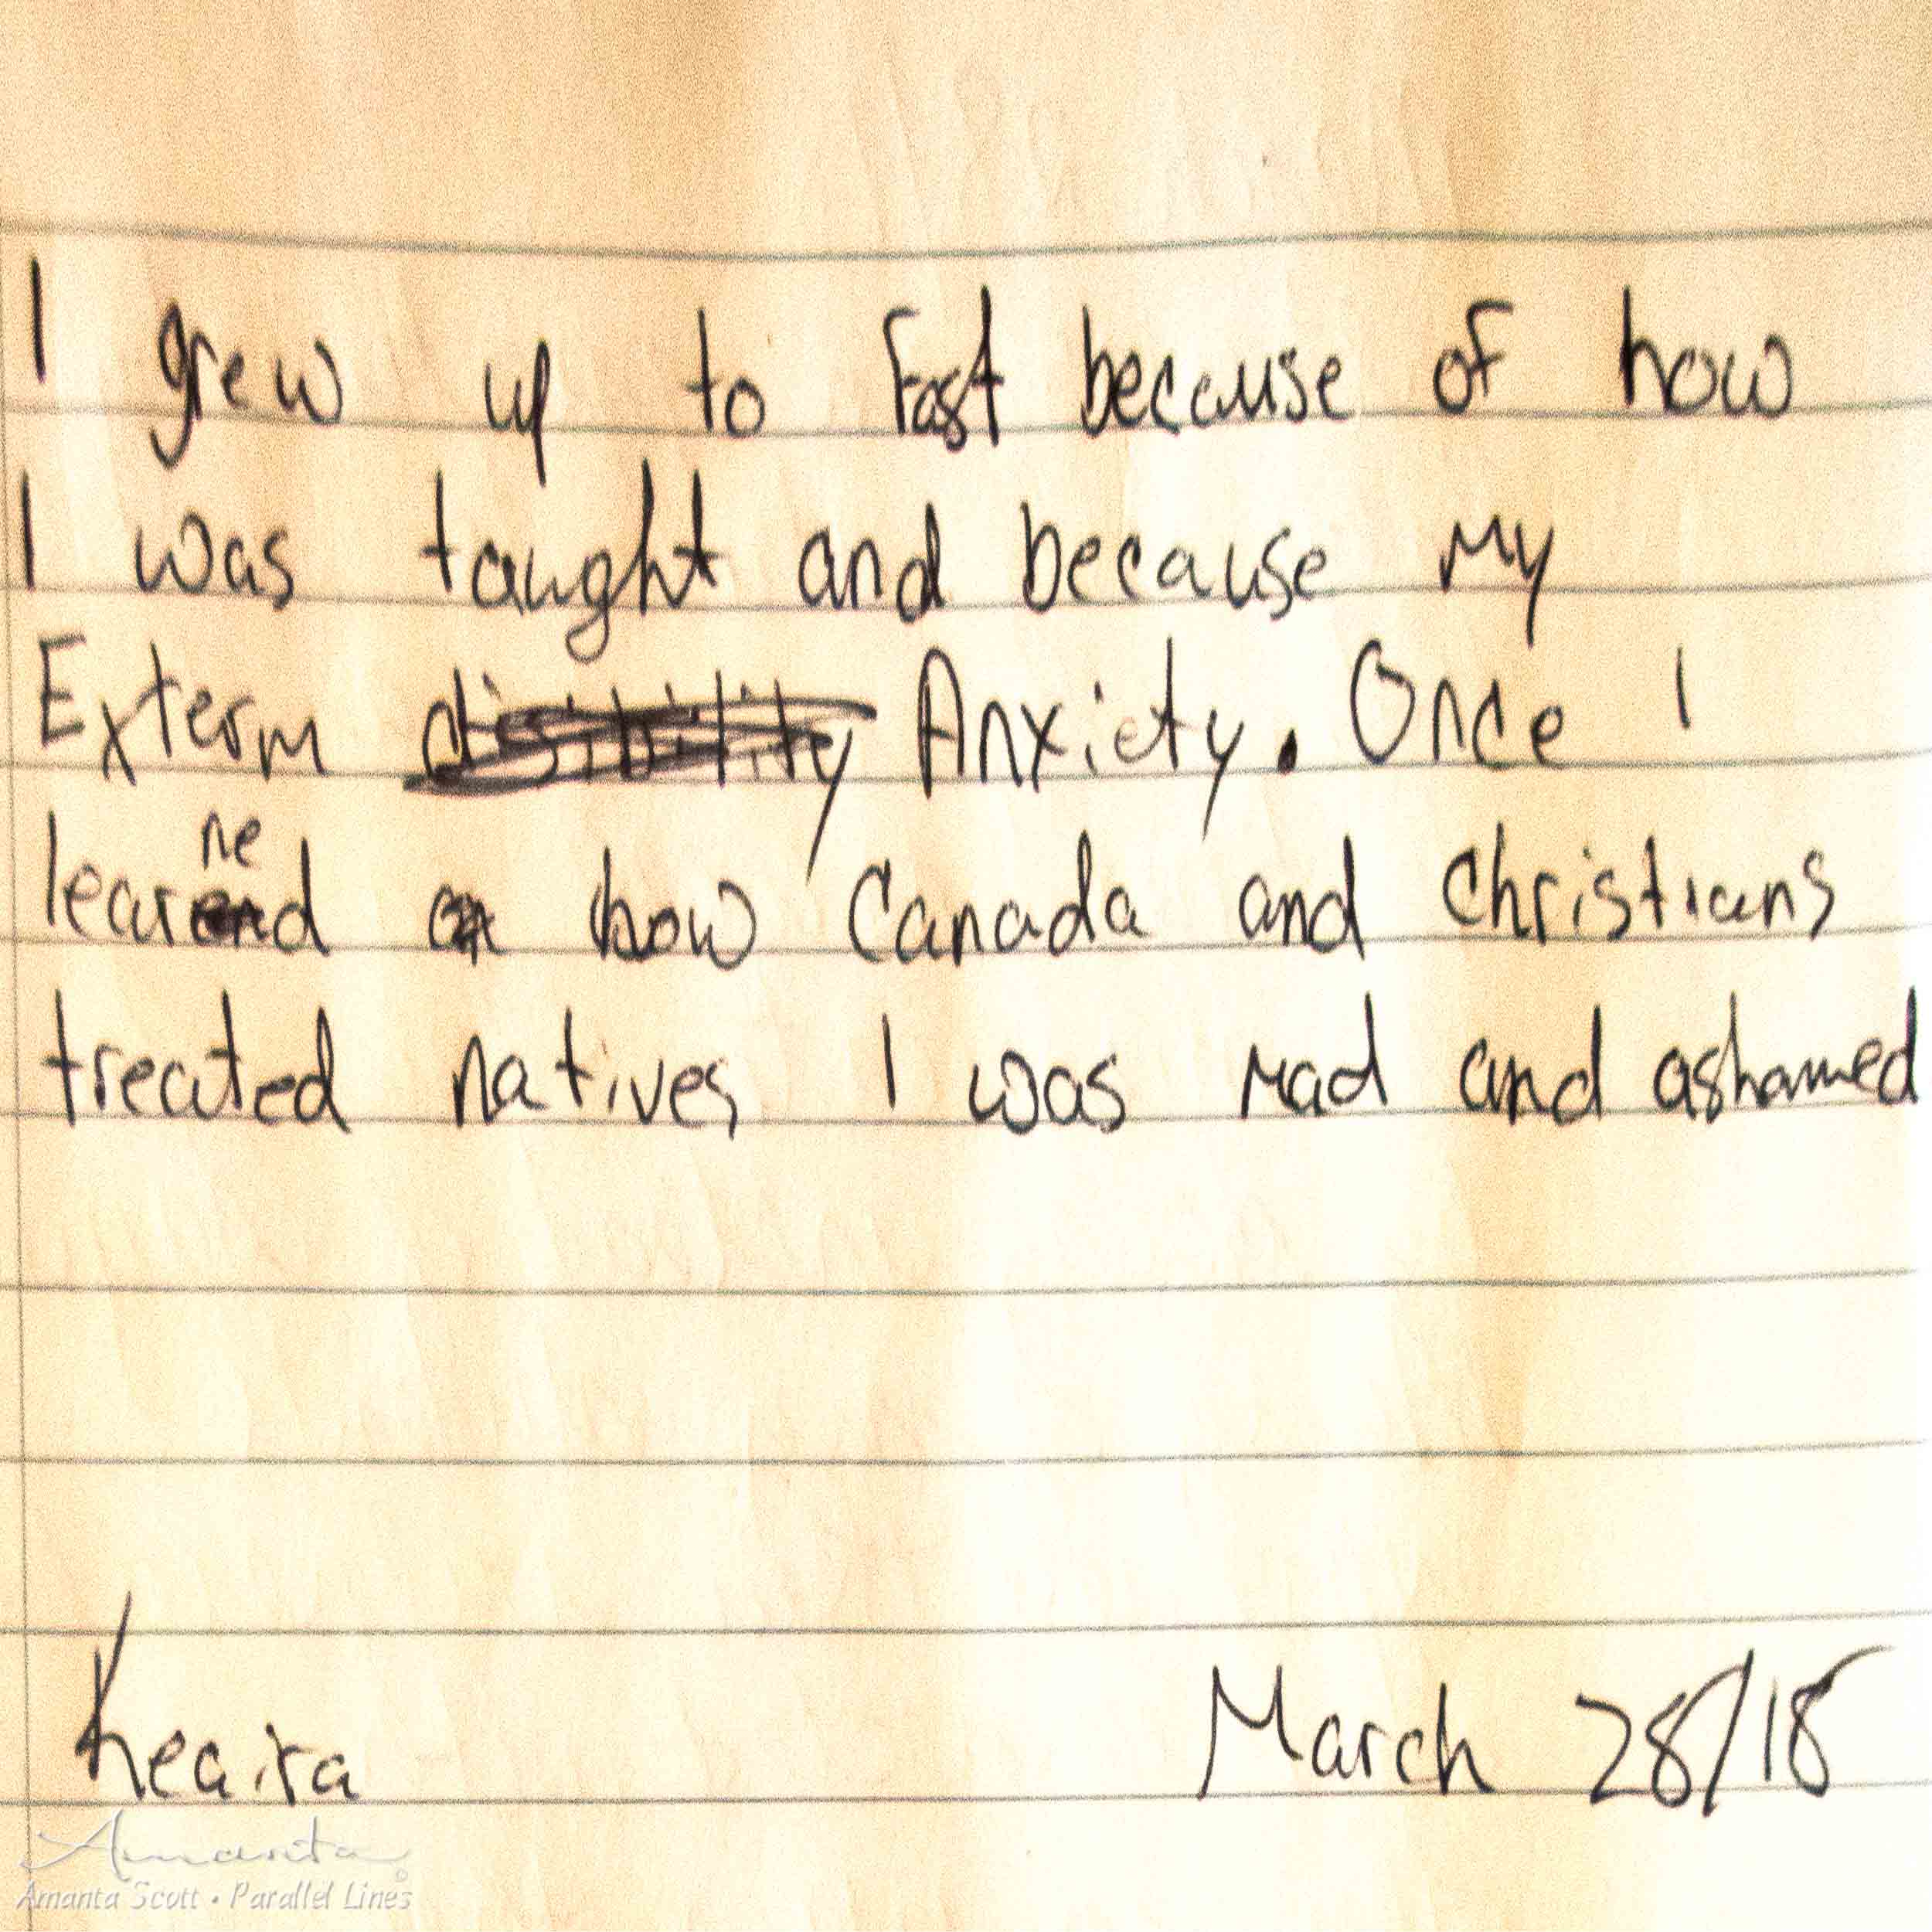 I grew up to Fast because of how
I was taught and because my
Exterm disibility Anxiety. Once I
learned how Canada and Christians
treated natives I was mad and ashamed
Keaira
March 28/18
Amanta
Amanta Scott • Parallel Lines